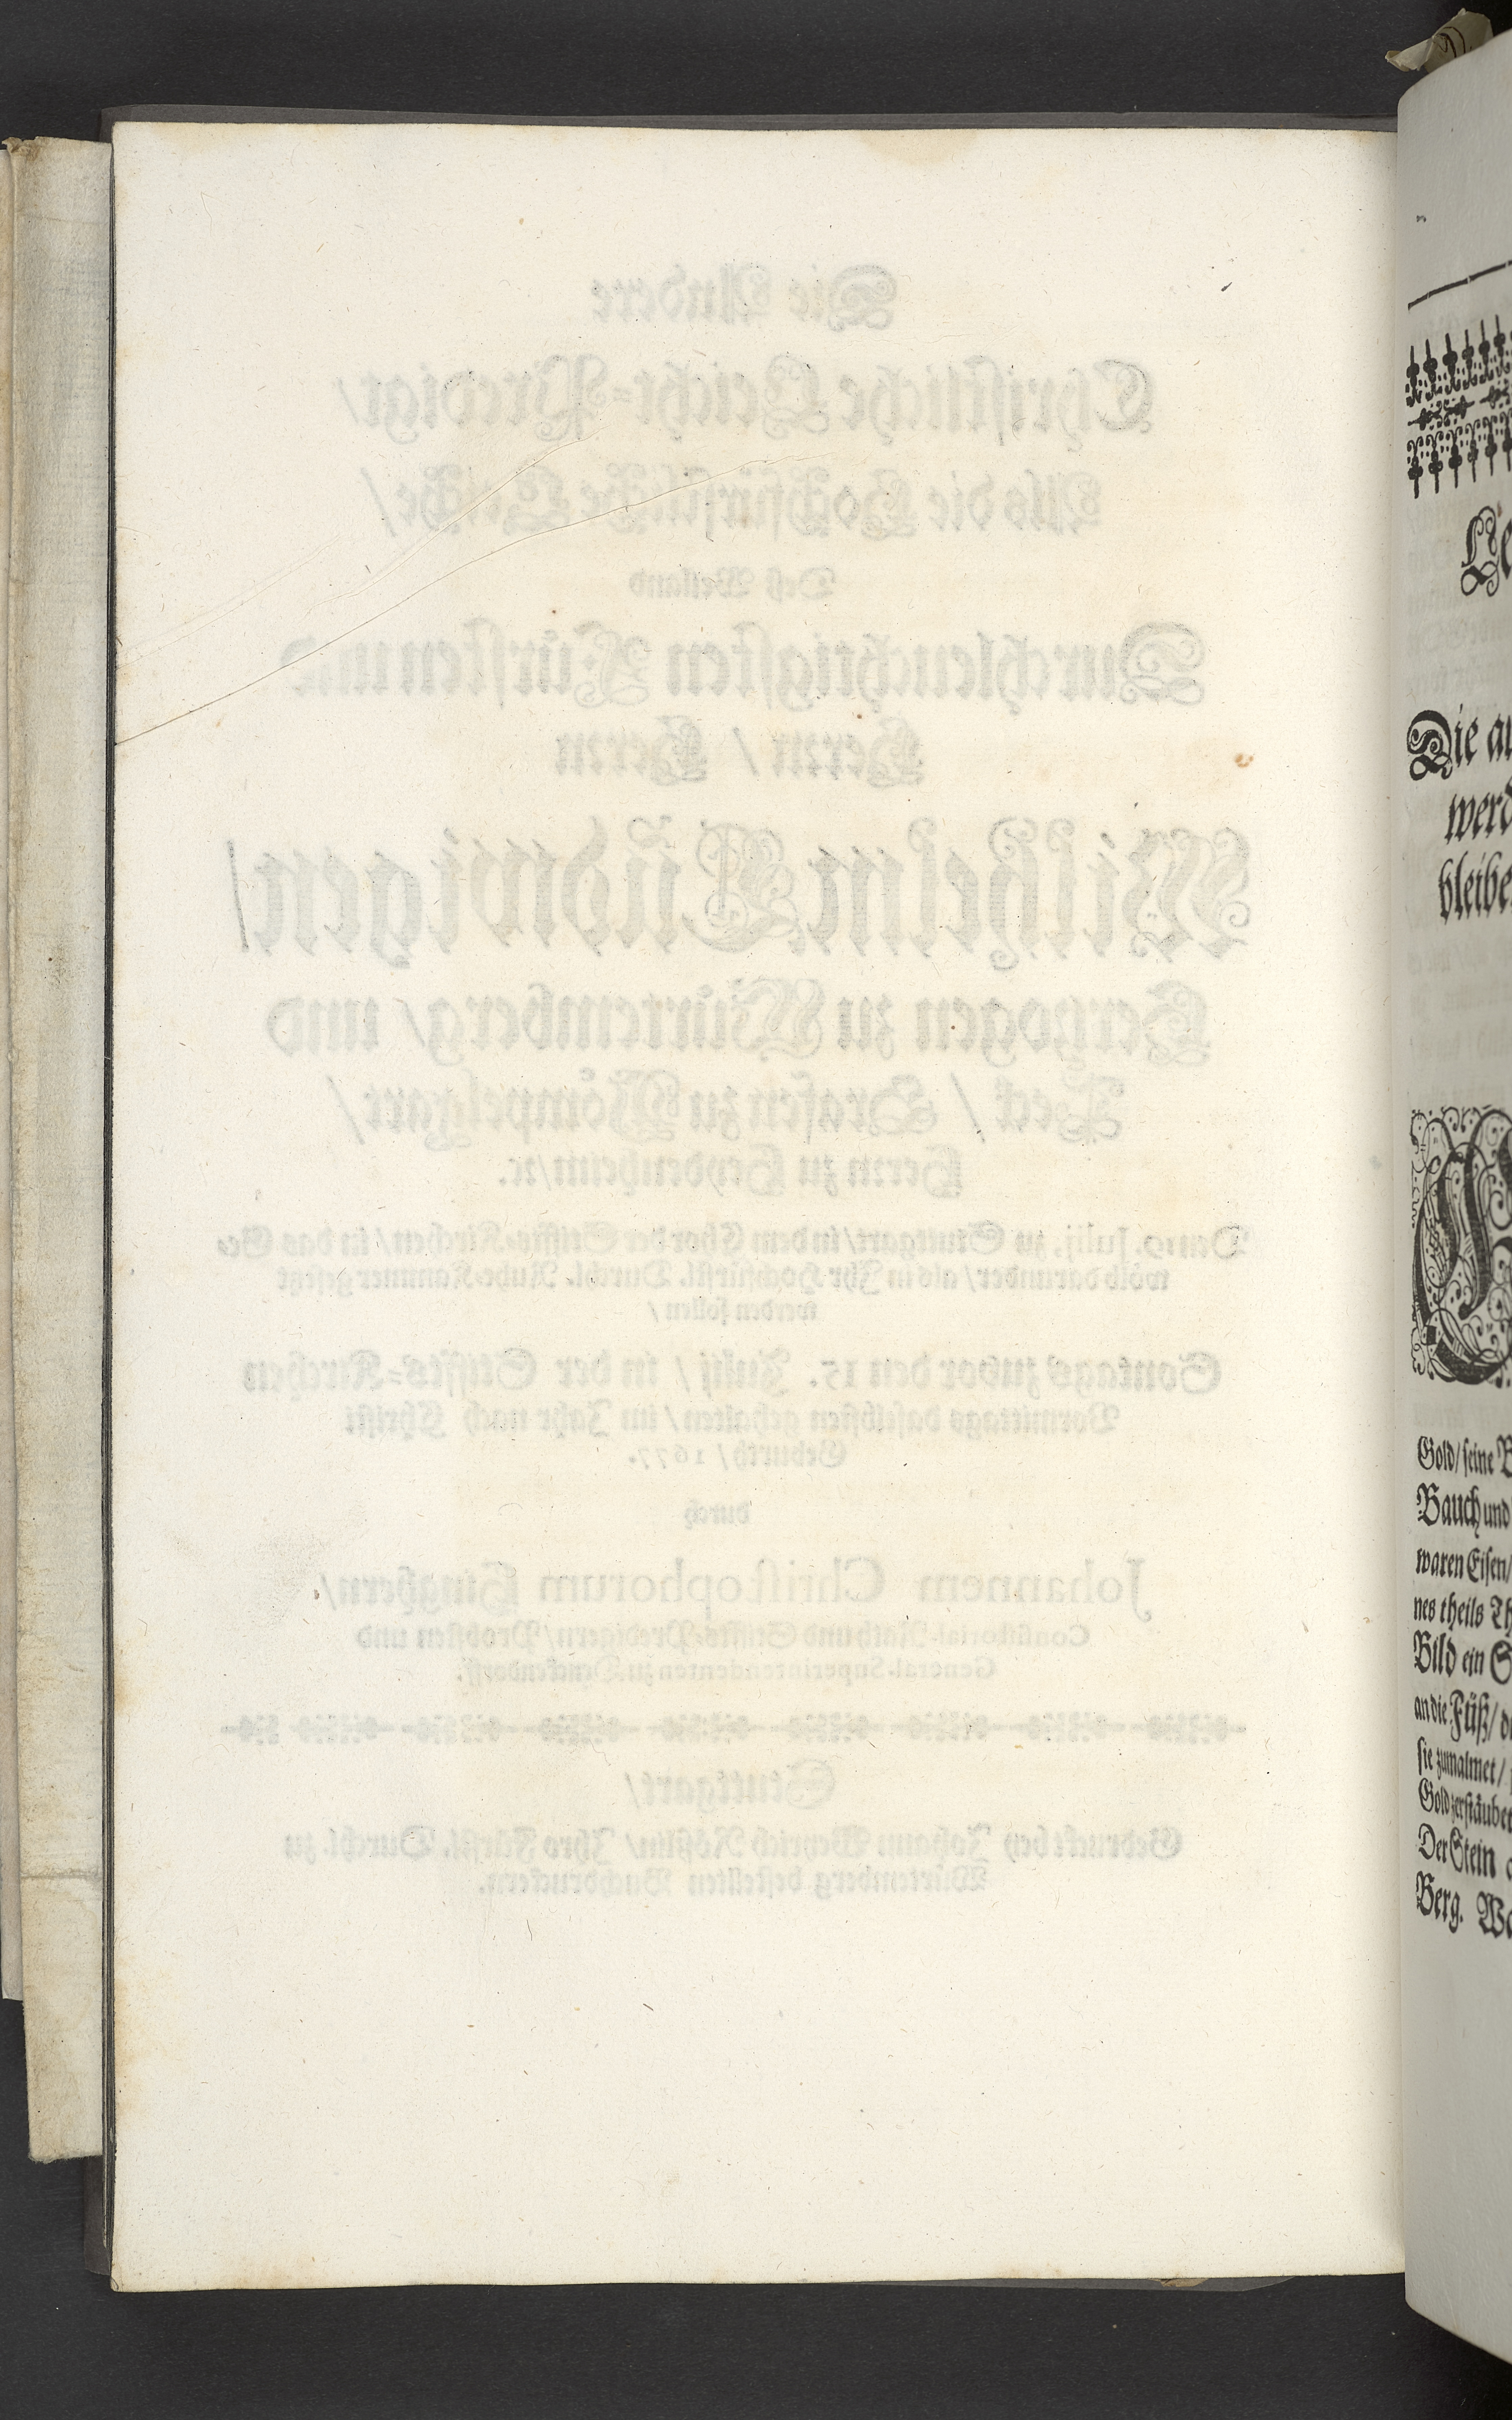 Die Andere
Christliche Leicht=Predigt/
Als die Hochfürstliche Leiche/
Deß Weiland
Durchleuchtigsten Fürsten und
Herrn / Herrn
Wilhelm Ludwigen/
Hertzogen zu Würtemberg/ und
Teck / Grafen zu Mömpelgart/
Herrn zu Heydenheim/ꝛc.
Julij. zu Stuttgart/in dem Chor der Stiffts-Kirchen/in das Ge
wölb darunder/ als in Ihr Hochfürstl. Durchl. Ruhe-Kammer gesetzt
werden sollen/
Sontags zuvor den 15. Julij / in der Stiffts=Kirchen
Vormittags daselbsten gehalten/ im Jahr nach Christi
Geburth/ 1677.
durch
Johannem Christophorum Hinghern/
Consistorial-Rath und Stiffts-Predigern/Probsten und
General-Superintendenten zu Denckendorff.
Stuttgart/
Gedruckt bey Johann Weyrich Rößlin/ Ihro Fürstl. Durchl. zu
Würtemberg bestellten Buchdruckern.
Die
bleibe
Gold/seine
Bauch und
waren Eisen/
nes theils
Bild ein
an die Füß/
sie zumalmet/
Der Stein
Berg.